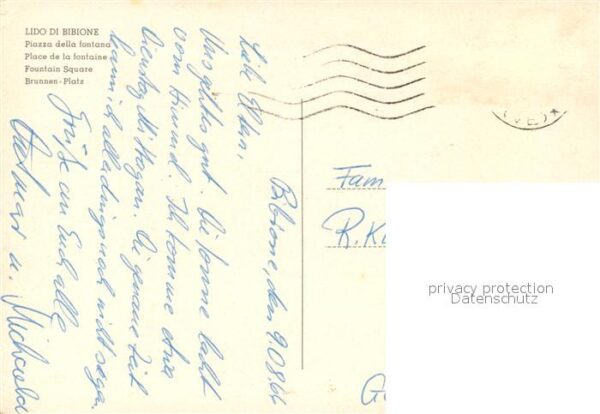 LIDO DI BIBIONE
Piazza della fontana
Place de la fontaine
Fountain Square
Brunnen-Platz
(VE)
Bibione, den 9.08.61
Liebe Eltern,
Uns geht es gut. Die Sonne lacht
vom Himmel. Ich komme etwa
Dienstag Mittag an. Die genaue Zeit
kann ich allerdings noch nicht sagen.
Grüße an Euch alle
u. Michaela
Fam
R. K
privacy protection
Datenschutz